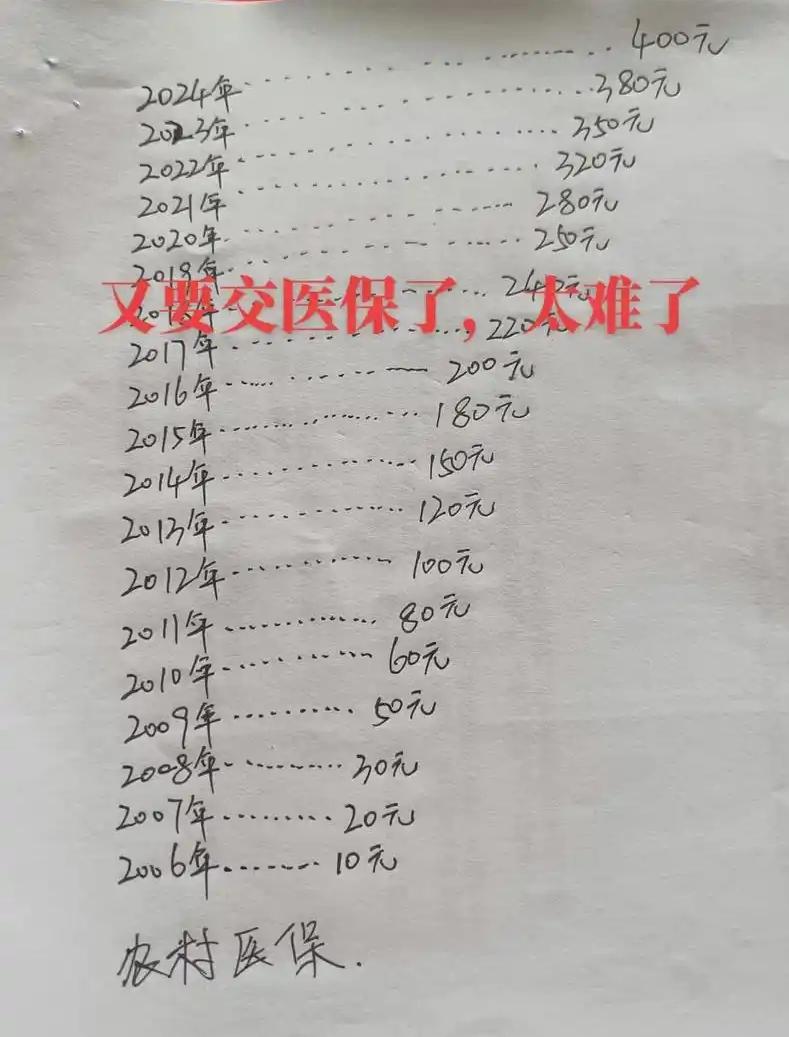 2024年 400元
2023年 380元
2022年 350元
2021年 320元
2020年 280元
2018年 250元
又要交医保了，太难了
2017年 220元
2016年 200元
2015年 180元
2014年 150元
2013年 120元
2012年 100元
2011年 80元
2010年 60元
2009年 50元
2008年 30元
2007年 20元
2006年 10元
农村医保.